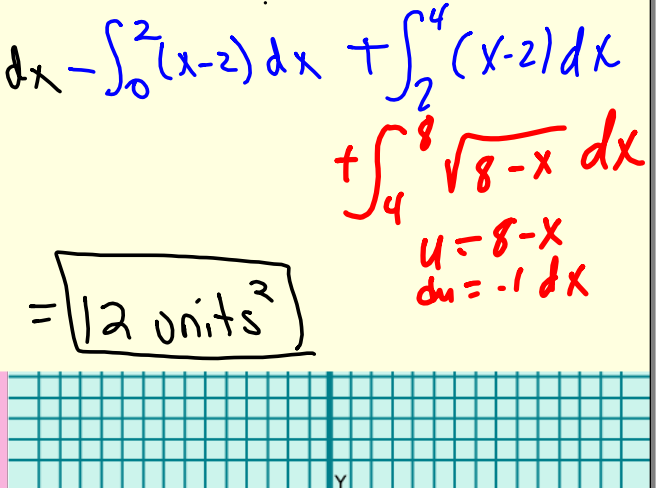 dx - ∫₀² (x-2) dx + ∫₂⁴ (x-2) dx
+ ∫₄⁸ √(8-x) dx
u = 8-x
du = -1 dx
= 12 units²
Y